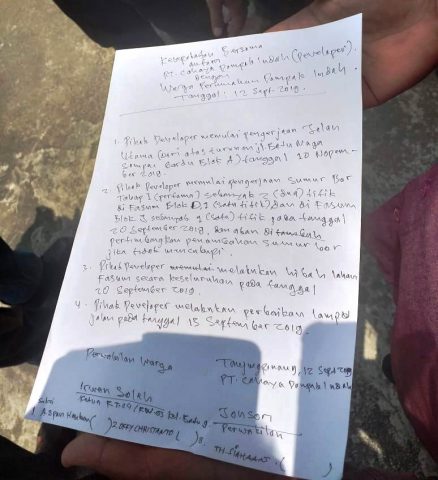 Kesepakatan Bersama
antara
PT. Cahaya Dompak Indah (Developer).
dengan
Warga Perumahan Dompak Indah.
Tanggal: 12 Sept 2019.
1. Pihak Developer memulai pengerjaan Jalan
Utama (Dari atas turunan jl Batu Naga
sampai Gardu Blok A) tanggal 20 Nopem-
ber 2019.
2. Pihak Developer memulai pengerjaan Sumur Bor
Tahap 1 (pertama) sebanyak 2 (dua) titik
di Fasum Blok D, 1 (satu titik) dan di Fasum
Blok J sebanyak 1 (satu) titik pada tanggal
20 September 2019, dan akan
pertimbangkan penambahan sumur bor
jika tidak mencukupi.
3. Pihak Developer memulai melakukan hibah lahan
Fasum secara keseluruhan pada tanggal
20 September 2019.
4. Pihak Developer melakukan perbaikan lampu
jalan pada tanggal 15 September 2019.
Perwakilan Warga
Tanjungpinang, 12 Sept 2019
PT. Cahaya Dompak Indah
Irwan Soleh
Jonson
Perwakilan
saksi